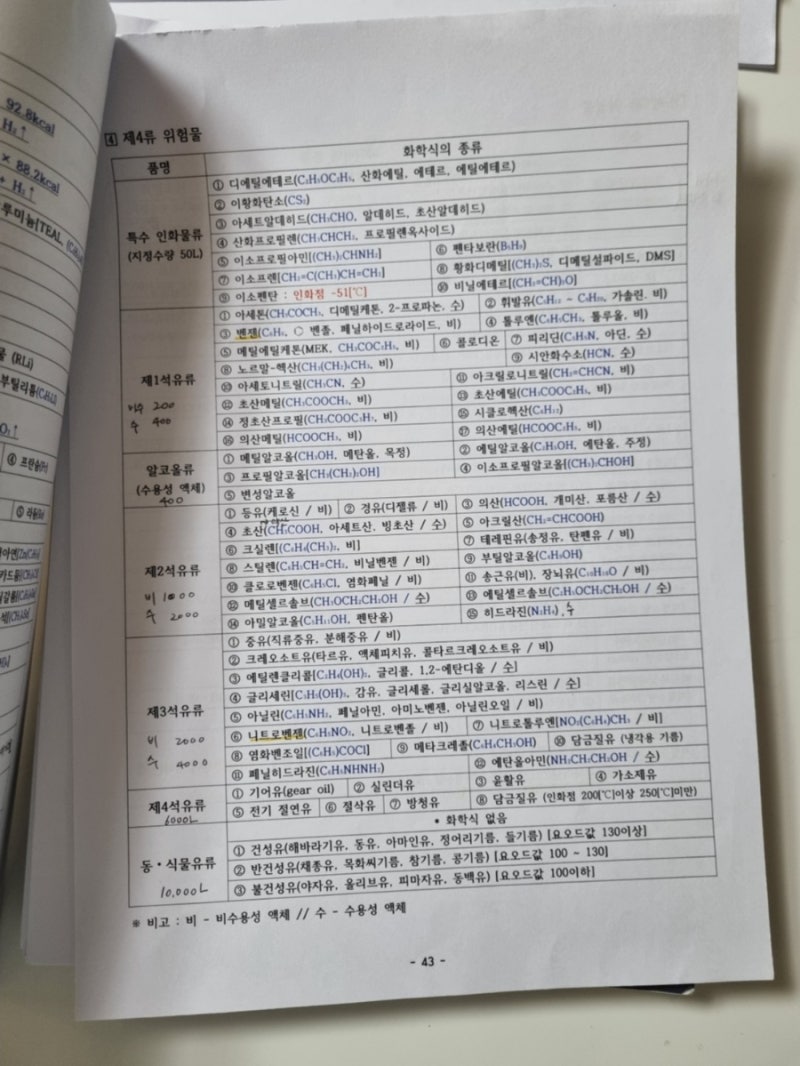 92.8kcal
H₂↑
× 88.2kcal
+ H₂↑
루미늄[TEAL,
물 (RLi)
부틸리튬
④ 프란슘(Fr)
4 제4류 위험물
품명 화학식의 종류
특수 인화물류
(지정수량 50L)
① 디에틸에테르(C₂H₅OC₂H₅, 산화에틸, 에테르, 에틸에테르)
② 이황화탄소(CS₂)
③ 아세트알데히드(CH₃CHO, 알데히드, 초산알데히드)
④ 산화프로필렌(CH₃CHCH₂, 프로필렌옥사이드)
⑤ 이소프로필아민[(CH₃)₂CHNH₂] ⑥ 펜타보란(B₅H₉)
⑦ 이소프렌[CH₂=C(CH₃)CH=CH₂] ⑧ 황화디메틸[(CH₃)₂S, 디메틸설파이드, DMS]
⑨ 이소펜탄 : 인화점 -51[℃] ⑩ 비닐에테르[(CH₂=CH)₂O]
제1석유류
비수 200
수 400
① 아세톤(CH₃COCH₃, 디메틸케톤, 2-프로파논, 수) ② 휘발유(C₅H₁₂ ~ C₉H₂₀, 가솔린, 비)
③ 벤젠(C₆H₆, 벤졸, 페닐하이드로라이드, 비) ④ 톨루엔(C₆H₅CH₃, 톨루올, 비)
⑤ 메틸에틸케톤(MEK, CH₃COC₂H₅, 비) ⑥ 콜로디온 ⑦ 피리딘(C₅H₅N, 아딘, 수)
⑧ 노르말-헥산(CH₃(CH₂)₄CH₃, 비) ⑨ 시안화수소(HCN, 수)
⑩ 아세토니트릴(CH₃CN, 수) ⑪ 아크릴로니트릴(CH₂=CHCN, 비)
⑫ 초산메틸(CH₃COOCH₃, 비) ⑬ 초산에틸(CH₃COOC₂H₅, 비)
⑭ 정초산프로필(CH₃COOC₃H₇, 비) ⑮ 시클로헥산(C₆H₁₂)
⑯ 의산메틸(HCOOCH₃, 비) ⑰ 의산에틸(HCOOC₂H₅, 비)
알코올류
(수용성 액체)
400
① 메틸알코올(CH₃OH, 메탄올, 목정) ② 에틸알코올(C₂H₅OH, 에탄올, 주정)
③ 프로필알코올[CH₃(CH₂)₂OH] ④ 이소프로필알코올[(CH₃)₂CHOH]
⑤ 변성알코올
제2석유류
비 1000
수 2000
① 등유(케로신 / 비) ② 경유(디젤류 / 비) ③ 의산(HCOOH, 개미산, 포름산 / 수)
④ 초산(CH₃COOH, 아세트산, 빙초산 / 수) ⑤ 아크릴산(CH₂=CHCOOH)
⑥ 크실렌[(C₆H₄(CH₃)₂, 비] ⑦ 테레핀유(송정유, 탄펜유 / 비)
⑧ 스틸렌(C₆H₅CH=CH₂, 비닐벤젠 / 비) ⑨ 부틸알코올(C₄H₉OH)
⑩ 클로로벤젠(C₆H₅Cl, 염화페닐 / 비) ⑪ 송근유(비), 장뇌유(C₁₀H₁₆O / 비)
⑫ 메틸셀르솔브(CH₃OCH₂CH₂OH / 수) ⑬ 에틸셀르솔브(C₂H₅OCH₂CH₂OH / 수)
⑭ 아밀알코올(C₅H₁₁OH, 펜탄올) ⑮ 히드라진(N₂H₄), 수
제3석유류
비 2000
수 4000
① 중유(직류중유, 분해중유 / 비)
② 크레오소트유(타르유, 액체피치유, 콜타르크레오소트유 / 비)
③ 에틸렌클리콜[C₂H₄(OH)₂, 글리콜, 1,2-에탄디올 / 수]
④ 글리세린[C₃H₅(OH)₃, 감유, 글리세롤, 글리실알코올, 리스린 / 수]
⑤ 아닐린(C₆H₅NH₂, 페닐아민, 아미노벤젠, 아닐린오일 / 비)
⑥ 니트로벤젠(C₆H₅NO₂, 니트로벤졸 / 비) ⑦ 니트로톨루엔[NO₂(C₆H₄)CH₃ / 비]
⑧ 염화벤조일[(C₆H₅)COCl] ⑨ 메타크레졸(C₆H₄CH₃OH) ⑩ 담금질유 (냉각용 기름)
⑪ 페닐히드라진(C₆H₅NHNH₂) ⑫ 에탄올아민(NH₂CH₂CH₂OH / 수)
제4석유류
6000L
① 기어유(gear oil) ② 실린더유 ③ 윤활유 ④ 가소제유
⑤ 전기 절연유 ⑥ 절삭유 ⑦ 방청유 ⑧ 담금질유 (인화점 200[℃]이상 250[℃]미만)
동·식물유류
10,000L
• 화학식 없음
① 건성유(해바라기유, 동유, 아마인유, 정어리기름, 들기름) [요오드값 130이상]
② 반건성유(채종유, 목화씨기름, 참기름, 콩기름) [요오드값 100 ~ 130]
③ 불건성유(야자유, 올리브유, 피마자유, 동백유) [요오드값 100이하]
※ 비고 : 비 - 비수용성 액체 // 수 - 수용성 액체
- 43 -